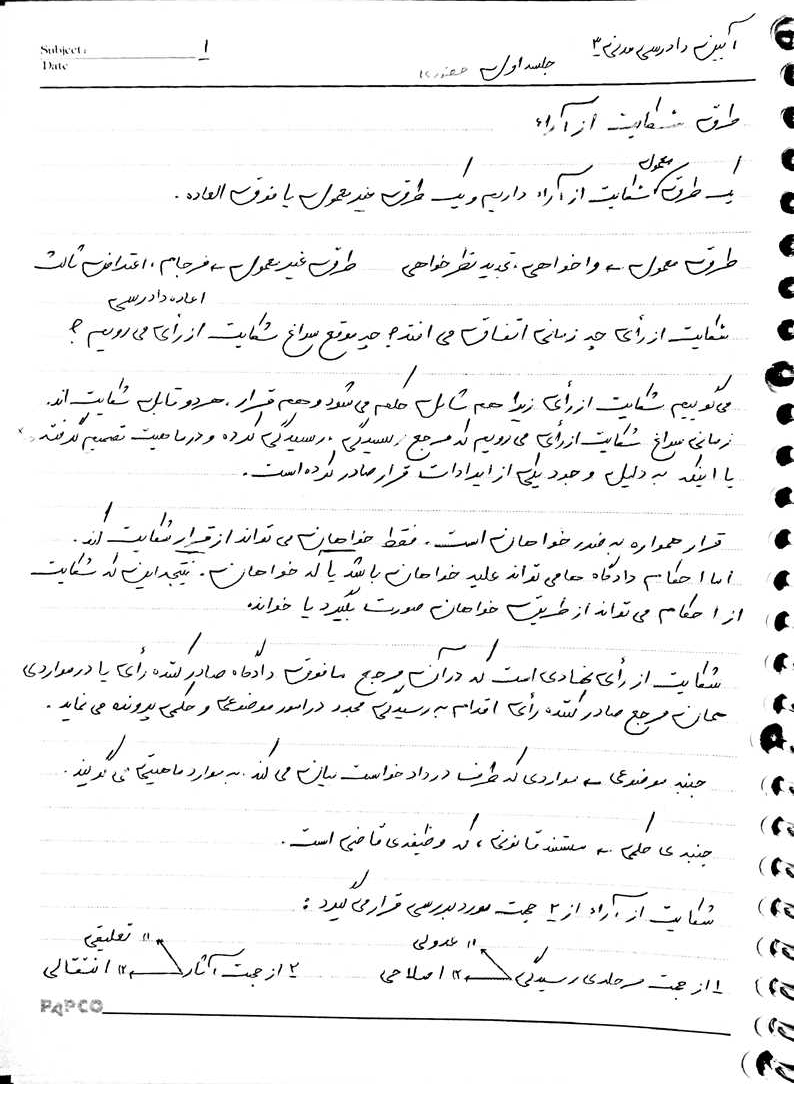 Subject:
Date
۱
آیین دادرسی مدنی ۳
جلسه اول حضوری
طرق شکایت از آراء
یک طرق معمول شکایت از آراء داریم و یک طرق غیرمعمول یا فوق العاده.
طرق معمول ← واخواهی، تجدیدنظرخواهی طرق غیرمعمول ← فرجام، اعتراض ثالث
اعاده دادرسی
شکایت از رأی چه زمانی اتفاق می افتد؟ چه موقع سراغ شکایت از رأی می رویم؟
می گوییم شکایت از رأی زیرا هم شامل حکم می شود و هم قرار. هر دو قابل شکایت اند.
زمانی سراغ شکایت از رأی می رویم که مرجع رسیدگی، رسیدگی کرده و در ماهیت تصمیم گرفته
یا اینکه به دلیل وجود یکی از ایرادات قرار صادر کرده است.
قرار همواره به ضرر خواهان است. فقط خواهان می تواند از قرار شکایت کند.
اما احکام دادگاه ها می تواند علیه خواهان باشد یا له خواهان. نتیجه این که شکایت
از احکام می تواند از طریق خواهان صورت بگیرد یا خوانده
شکایت از رأی نهادی است که در آن مرجع مافوق دادگاه صادر کننده رأی یا در مواردی
همان مرجع صادر کننده رأی اقدام به رسیدگی مجدد در امور موضوعی و حکمی پرونده می نماید.
جنبه موضوعی ← مواردی که طرف در دادخواست بیان می کند. به موارد ماهیتی می گویند.
جنبه ی حکمی ← مستند قانونی، که وظیفه ی قاضی است.
شکایت از آراء از ۲ جهت مورد بررسی قرار می گیرد:
۱ از جهت مرحله ی رسیدگی ۱) عدولی ۲) اصلاحی ۲ از جهت آثار ۱) تعلیقی ۲) انتقالی
PAPCO